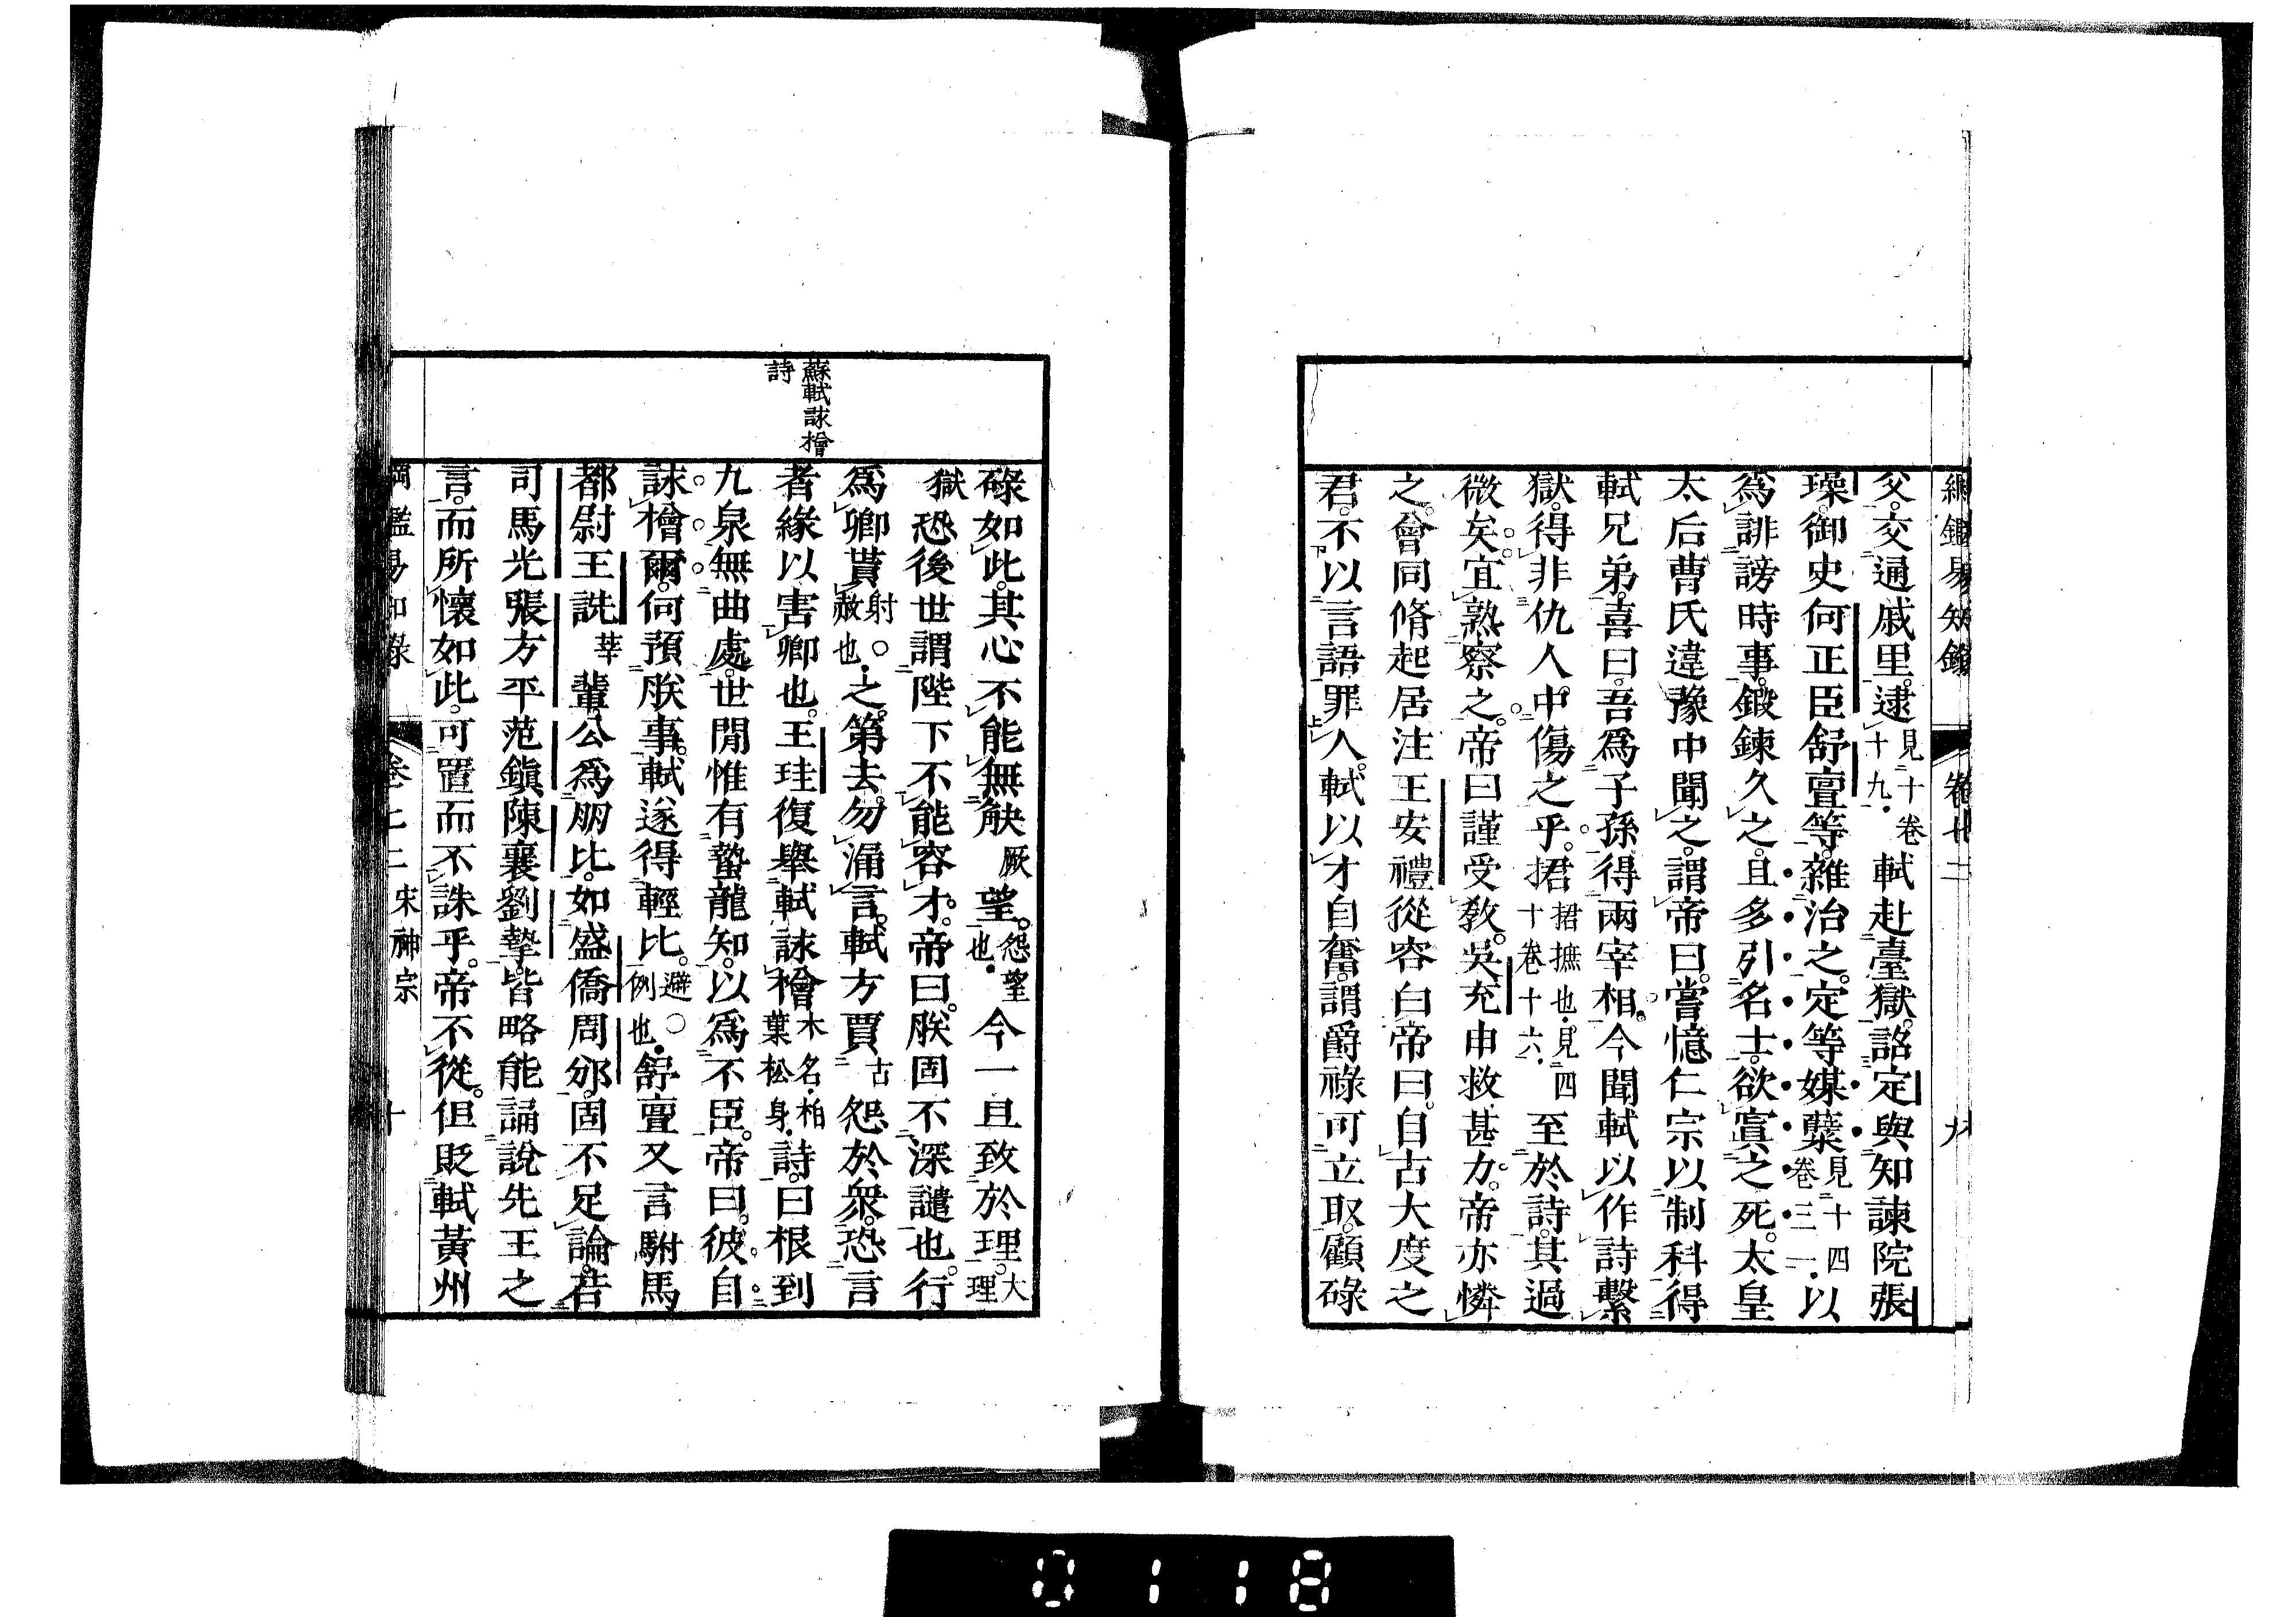 綱鑑易知錄 卷廿二 九
父。交通戚里。逮見十卷十九。軾赴臺獄。詔定與知諫院張
璪。御史何正臣舒亶等。雜治之。定等媒糵見十四卷三一。以
爲誹謗時事。鍛鍊久之。且多引名士。欲寘之死。太皇
太后曹氏違豫中聞之。謂帝曰。嘗憶仁宗以制科得
軾兄弟。喜曰。吾爲子孫得兩宰相。今聞軾以作詩繫
獄。得非仇人中傷之乎。捃捃摭也。見四十卷十六。至於詩。其過
微矣。宜熟察之。帝曰謹受敎。吳充申救甚力。帝亦憐
之。會同脩起居注王安禮從容白帝曰。自古大度之
君。不以言語罪人。軾以才自奮。謂爵祿可立取。顧碌
碌如此。其心不能無觖厥望。怨望也。今一旦致於理。大理
獄恐後世謂陛下不能容才。帝曰。朕固不深譴也。行
爲卿貰射○赦也。之。第去。勿漏言。軾方賈古怨於衆。恐言
蘇軾詠檜
詩
者緣以害卿也。王珪復舉軾詠檜木名。柏葉松身。詩。曰根到
九泉無曲處。世閒惟有蟄龍知。以爲不臣。帝曰。彼自
詠檜爾。何預朕事。軾遂得輕比。避○例也。舒亶又言駙馬
都尉王詵莘輩。公爲朋比。如盛僑周邠。固不足論。若
司馬光張方平范鎭陳襄劉摯。皆略能誦說先王之
言。而所懷如此。可置而不誅乎。帝不從。但貶軾黃州
綱鑑易知錄 卷七二 宋神宗 十
0118